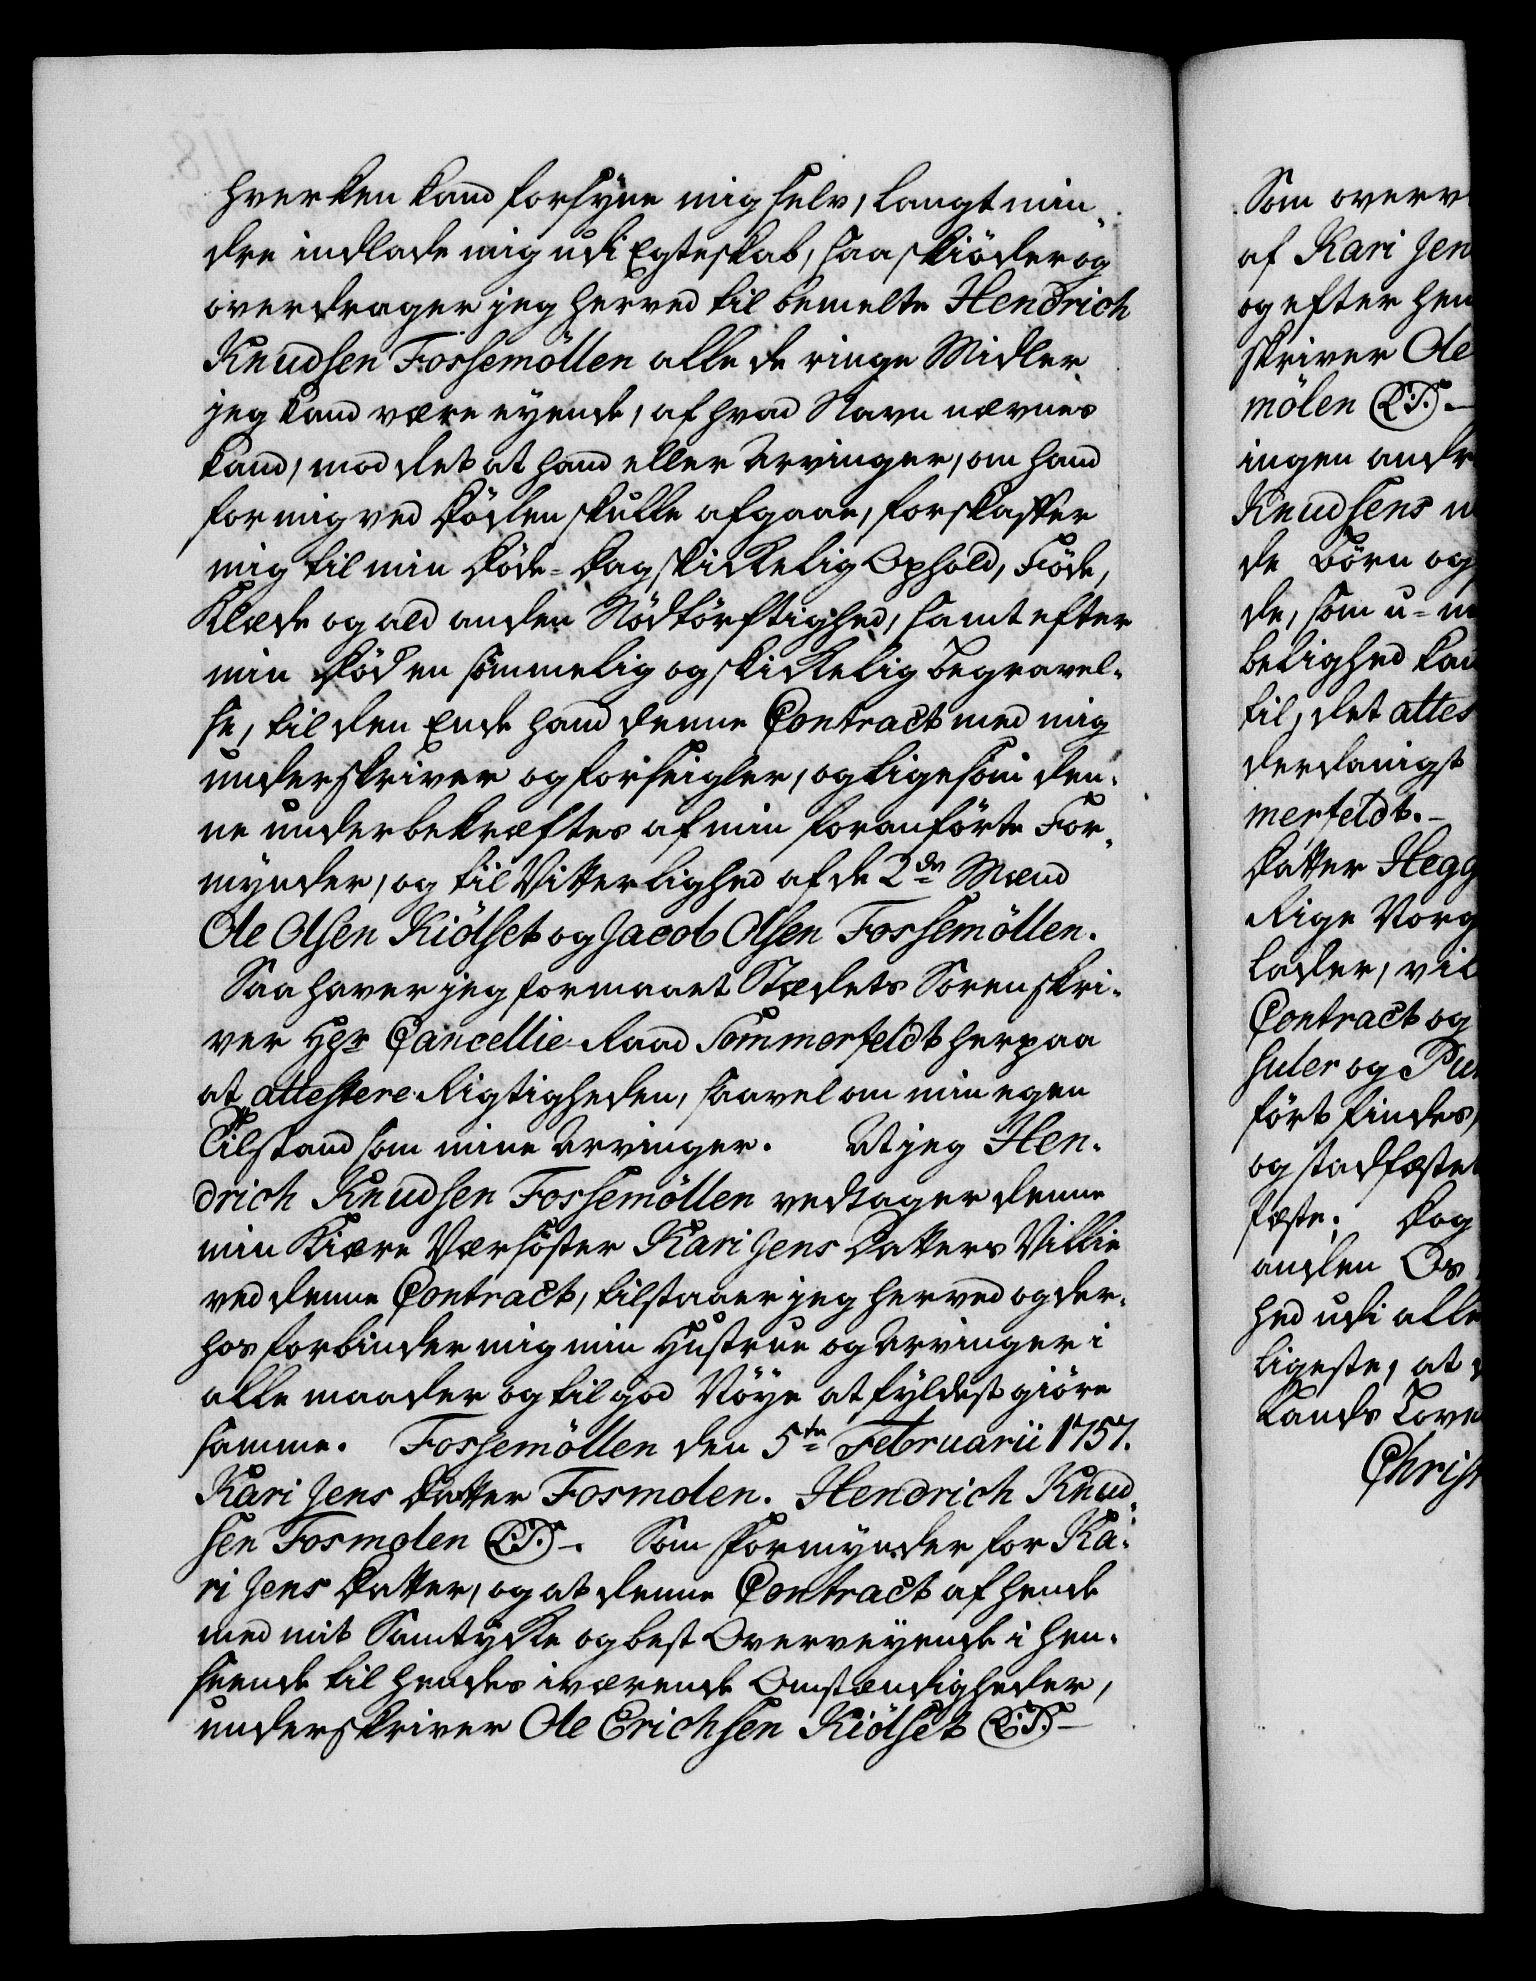 hverken kand forsÿne mig selv, langt min-
dre indlade mig udi Egteskab, saa skiöder og
overdrager jeg herved til bemelte Hendrich
Knudsen Fossemöllen alle de ringe Midler
jeg kand være eÿende, af hvad Navn nævnes
kand, mod det at hand eller Arvinger, om hand
for mig ved Döden skulle afgaae, forskaffer
mig til min Döde-Dag skikkelig Ophold, Föde,
Klæde og ald anden Nödtörftighed, samt efter
min Död en sömmelig og skikkelig begravel-
se, til den Ende hand denne Contract med mig
underskriver og forseigler, og ligesom den-
ne underbekræftes af min foranförte For-
mÿnder, og til Vitterlighed af de 2de Mænd
Ole Olsen Kiölset og Jacob Olsen Fossemöllen.
Saa haver jeg formaaet Stædets Sorenskri-
ver Hgr Cancellie Raad Sommerfeldt herpaa
at attestere Rigtigheden, saavel om min egen
Tilstand som mine Arvinger. At jeg Hen-
drich Knudsen Fossemöllen vedtager denne
min Kiære Værsöster Kari Jens Datters Villie
ved denne Contract, tilstaaer jeg herved og der-
hos forbinder mig min Hustrue og Arvinger i
alle maader og til god Nöÿe at fÿldest giöre
samme. Fossemöllen den 5te Februarii 1757.
Kari Jens Datter Fosmolen. Hendrich Knud-
sen Fosmolen (L.S.) -. Som Formÿnder for Ka-
ri Jens Datter, og at denne Contract af hende
med mit Samtÿkke og best Overveÿende i hen-
seende til hendes iværende Omstændigheder,
underskriver Ole Erichsen Kiölset (L.S.) -
Som overv
af Kari Jen
og efter hen
skriver Ole
mölen (L.S.) -
ingen andr
Knudsens
de Börn og
de, som u-
belighed kan
til, det attes
derdanigst
merfeldt. -
Datter Hegg
Rige Norg
lader, vil
Contract og
suler og Pun
fört findes,
og stadfæste
fæste; Dog
anden Os
hed udi alle
ligeste, at
Lands Love
Christ